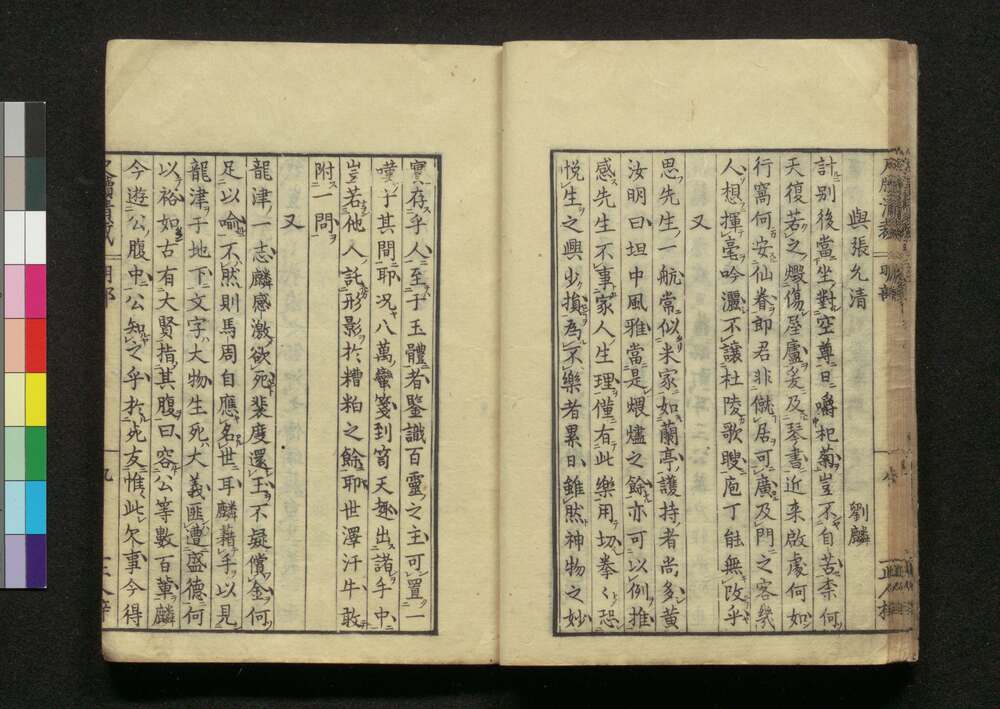 與張允清
劉麟
討別後當坐對空尊日嚼杞菊豈不自苦柰何
天復若之燬傷屋廬爰及琴書近来啟處何如
行窩何安仙眷即君非僦居可廣及門之客幾
人想揮毫吟灑不讓杜陵歌瞍庖丁能無改乎
又
思先生一航常似米家如蘭亭護持者尚多黄
汝明曰坦中風雅當是煨燼之餘亦可以例推
感先生不事家人生理僅有此樂用切拳〻恐
悦生之興少損為不樂者累日雖然神物之妙
實存乎人至于玉體者鑒識百靈之主可置一
嘆于其間耶况八萬蠻箋到笥天趣出諸手中
豈若他人託形影於糟粕之餘耶世澤汗牛敢
附一問
又
龍津一志麟感激欲死裴度還玉不疑償金何
足以喻不然則馬周自應名世耳麟藉手以見
龍津于地下文字大物生死大義匪遭盛德何
以裕如古有大賢指其腹曰容公等數百軰麟
今遊公腹中公知之乎於死友惟此欠事今得
明部
九